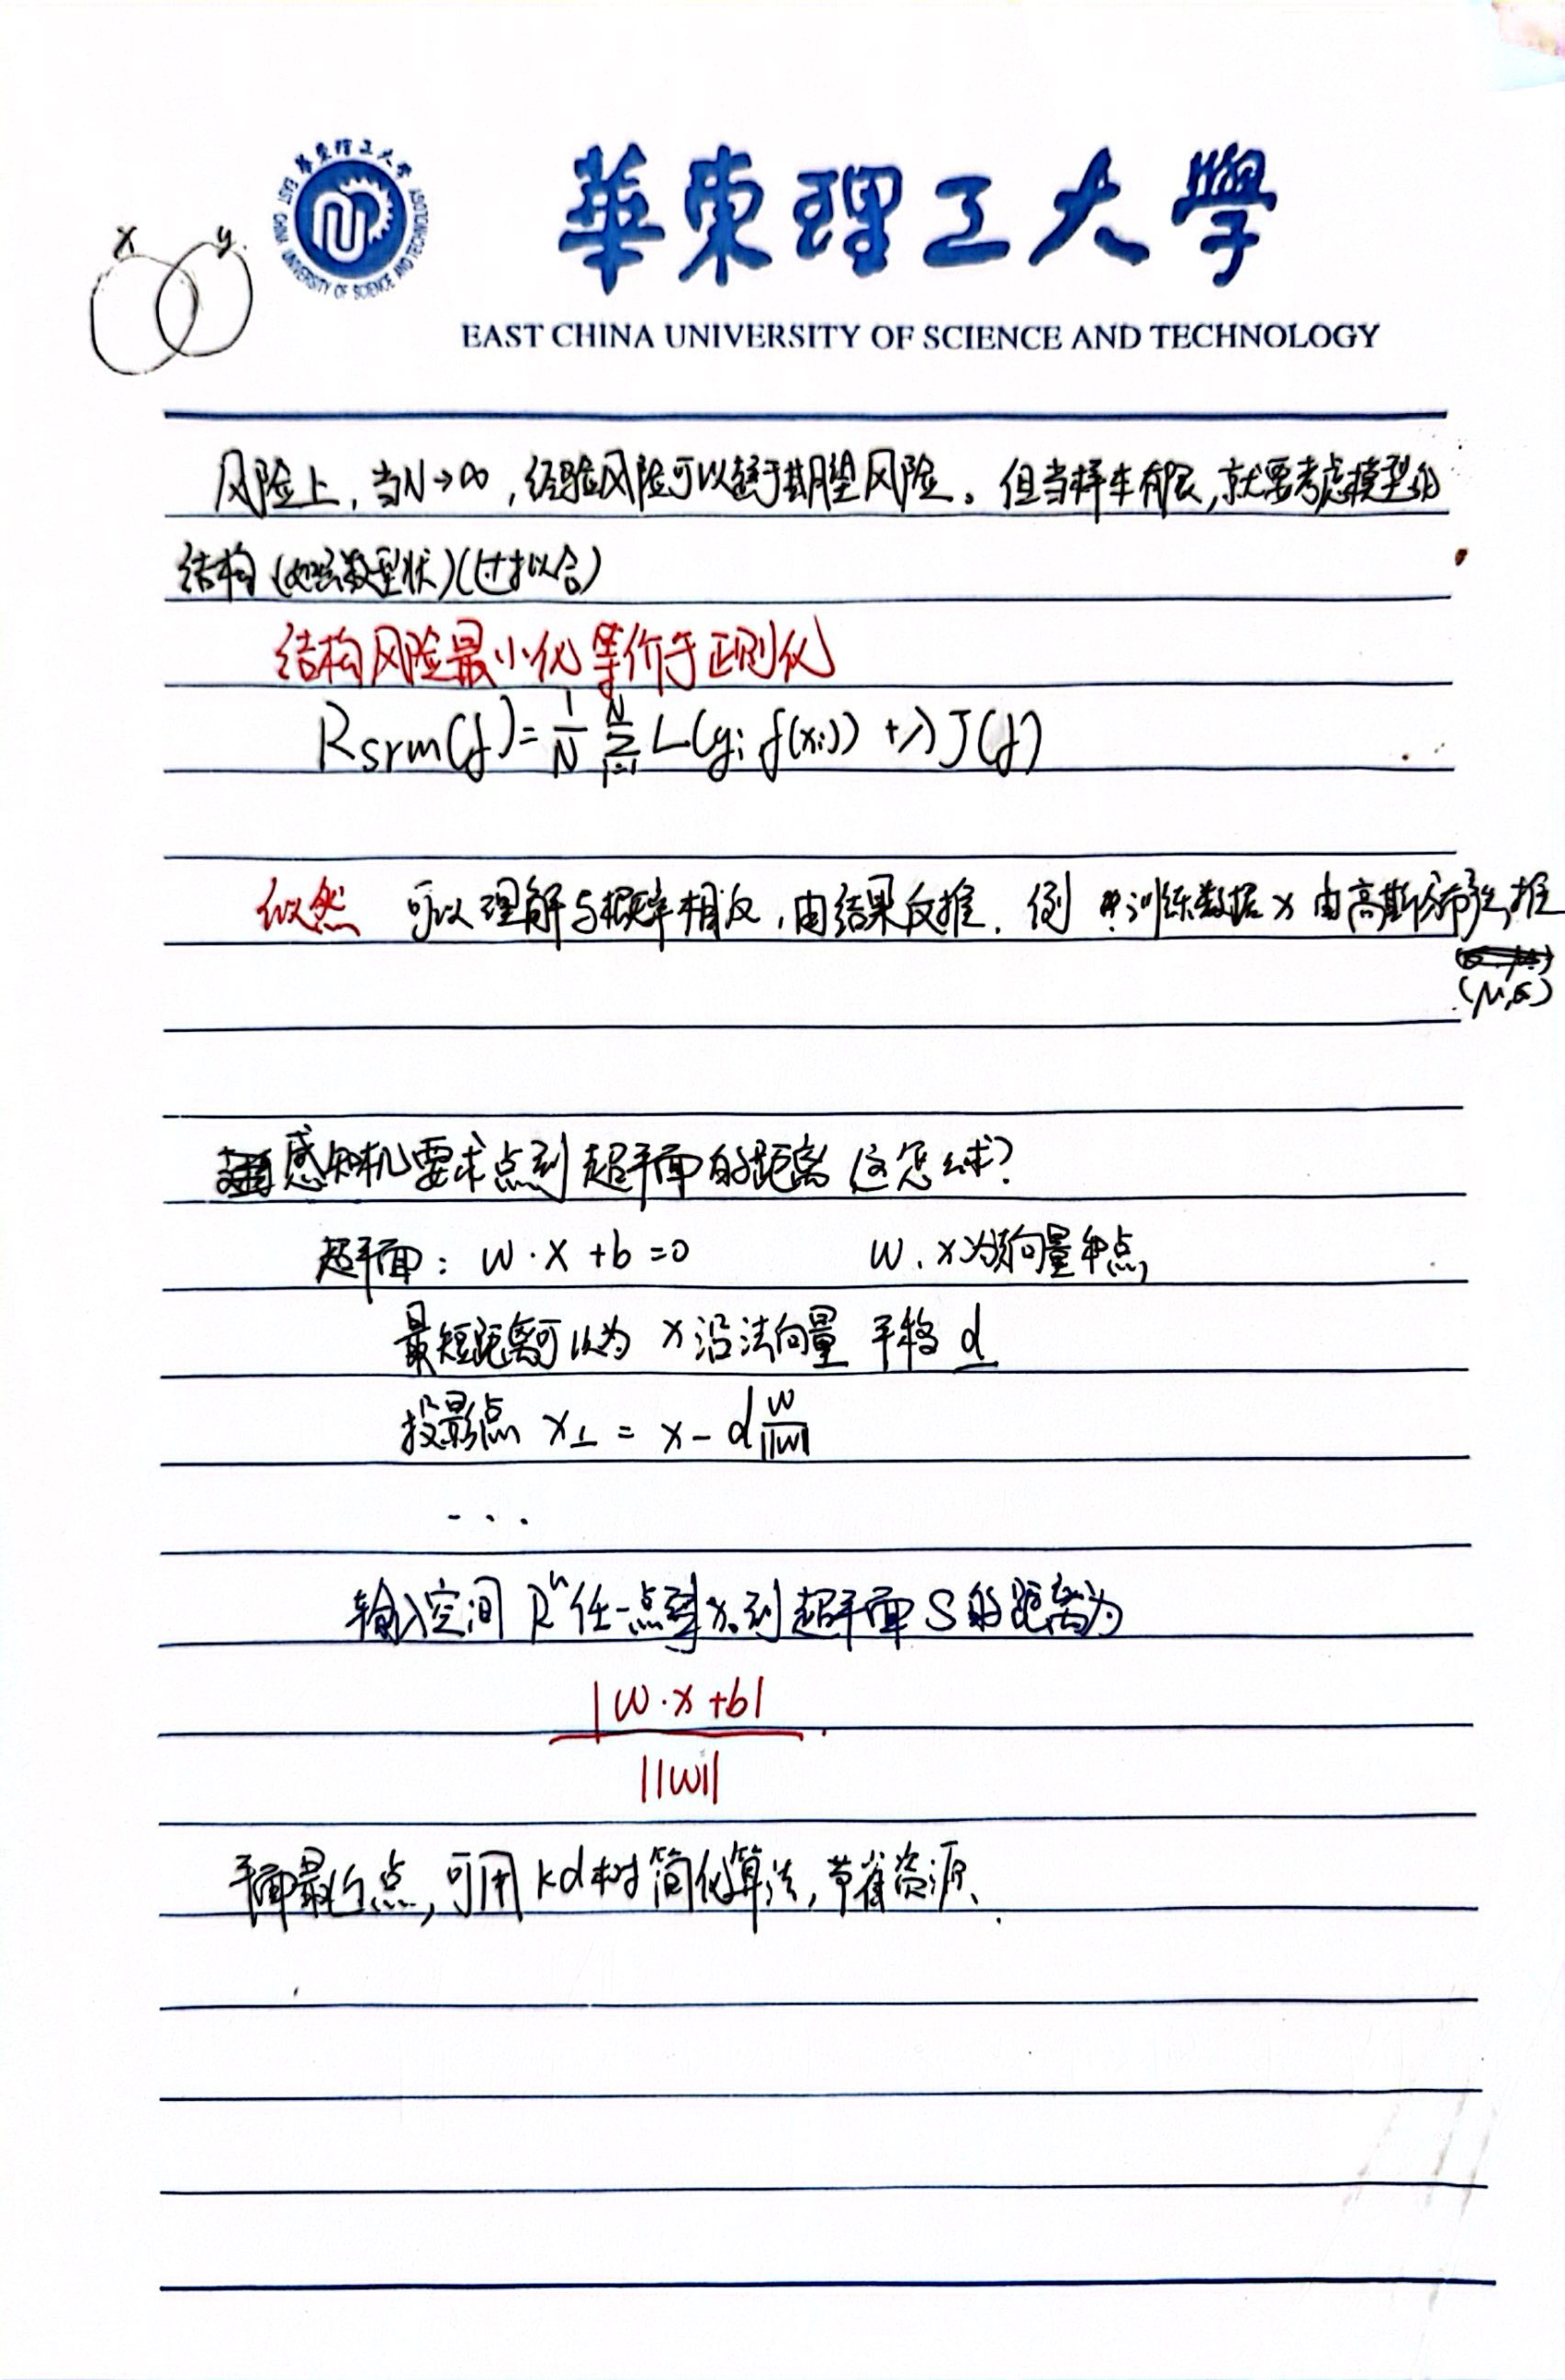 華東理工大學
EAST CHINA UNIVERSITY OF SCIENCE AND TECHNOLOGY
華東理工大学
EAST CHINA UNIVERSITY OF SCIENCE AND TECHNOLOGY
x y
风险上，当N→∞，经验风险可以趋于期望风险。但当样本有限，就要考虑模型的
结构（如函数型状）（过拟合）
结构风险最小化等价于正则化
Rsrm(f)=1/N N∑i=1 L(yi f(xi)) +λJ(f)
似然 可以理解与概率相反，由结果反推. 例 训练数据x由高斯分布产生,推
(μ,σ)
感知机要求点到超平面的距离 这怎么求?
超平面: w·x+b=0 w、x为向量和点
最短距离可以为 x沿法向量 平移 d
投影点 x⊥ = x-d w/||w||
...
输入空间 Rⁿ任一点x₀到超平面S的距离为
|w·x+b|
||w||
平面最近点,可用kd树简化算法,节省资源.